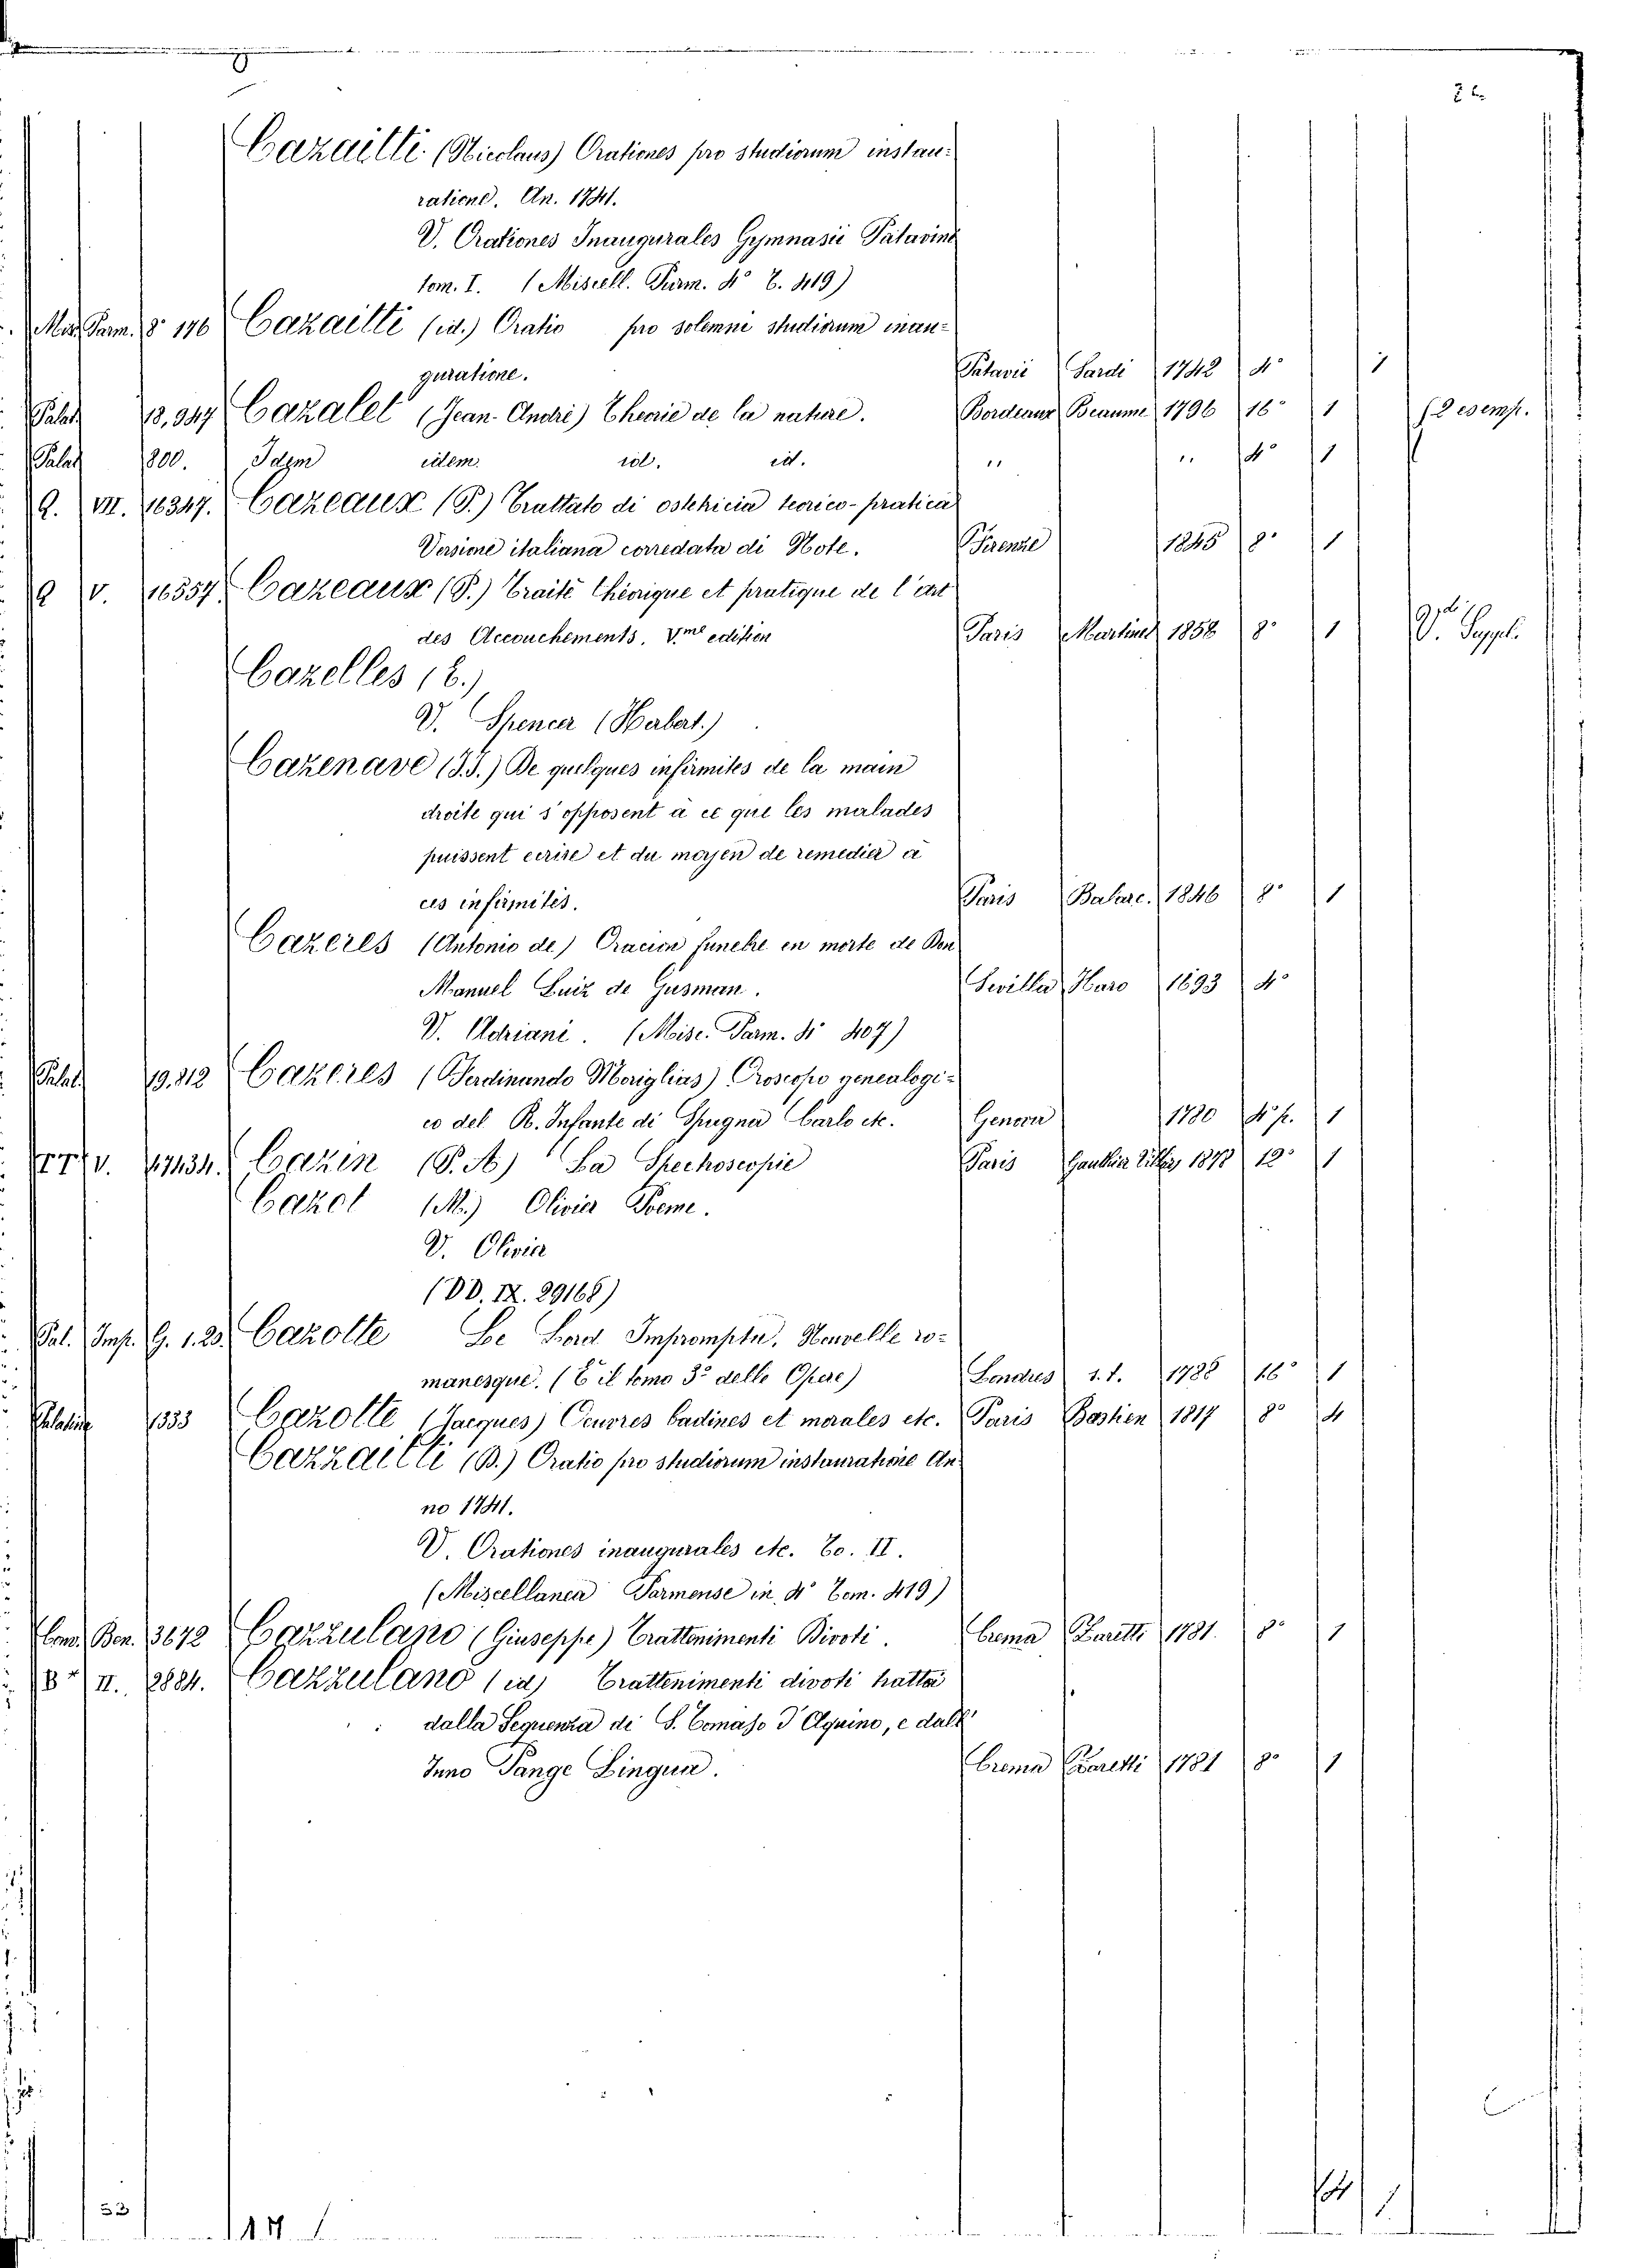 Cazailti (Nicolaus) Orationes pro studiorum instau-
ratione. An. 1741.
V. Orationes Inaugurales Gymnasii Patavini
tom. I. (Miscell. Parm. 4° T. 419)
Mis. Parm. 8° 176 Cazailti (id.) Oratio pro solemni studiorum inau-
guratione. Patavii Sardi 1742 4° 1
Palat. 13,947 Cazalet (Jean-André) Theorie de la nature. Bordeaux Beaume 1796 16° 1 (2 esemp.
Palat 800. Idem idem id. id. " " 4° 1
Q. VII. 16347. Cazeaux (P.) Trattato di ostetricia teorico-pratica
Versione italiana corredata di Note. Firenze 1845 8° 1
Q V. 16557 Cazeaux (P.) Traité théorique et pratique de l'art
des Accouchements. V.me edition Paris Martinet 1858 8° 1 V. Suppl.
Cazelles (E.)
V. Spencer (Herbert.)
Cazenave (J.J.) De quelques infirmités de la main
droite qui s'opposent à ce que les malades
puissent ecrire et du moyen de remedier a
ces infirmités. Paris Balare. 1846 8° 1
Cazeres (Antonio de) Oracion funebre en morte de Don
Manuel Luiz de Gusman. Sevilla Haro 1693 4°
V. Adriani. (Misc. Parm. 4° 407)
Palat. 19,812 Cazeres (Ferdinando Moriglias) Oroscopo genealogi-
co del R. Infante di Spagna Carlo etc. Genova 1780 4° p. 1
TT V. 17434. Cazin (P. A) La Spechoscopie Paris Gauthier Villars 1878 12° 1
Cazot (M.) Olivier Poeme.
V. Olivier
(DD. IX. 29168)
Pal. Imp. G. 1. 23. Cazotte Le Lord Impromptu, Nouvelle ro-
manesque. (È il tomo 3° delle Opere) Londres s.t. 1788 16° 1
Palatina 1333 Cazotte (Jacques) Oeuvres badines et morales etc. Paris Bastien 1817 8° 4
Cazzailti (B.) Oratio pro studiorum instauratione An-
no 1741.
V. Orationes inaugurales etc. To. II.
(Miscellanea Parmense in 4° Tom. 419)
Com. Ben. 3672 Cazzulano (Giuseppe) Trattenimenti Divoti. Crema 1781. 8° 1
II. 2884. Cazzulano (id) Trattenimenti divoti tratta
dalla Sequenza di S. Tomaso d'Aquino, e dall'
Inno Pange Lingua. Crema 1781 8° 1